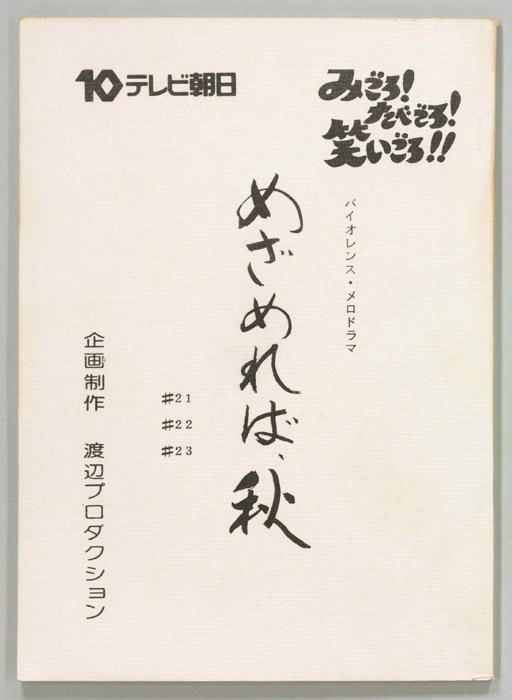 10テレビ朝日
みごろ!
たべごろ!
笑いごろ!!
バイオレンス・メロドラマ
めざめれば、秋
#21
#22
#23
企画制作 渡辺プロダクション